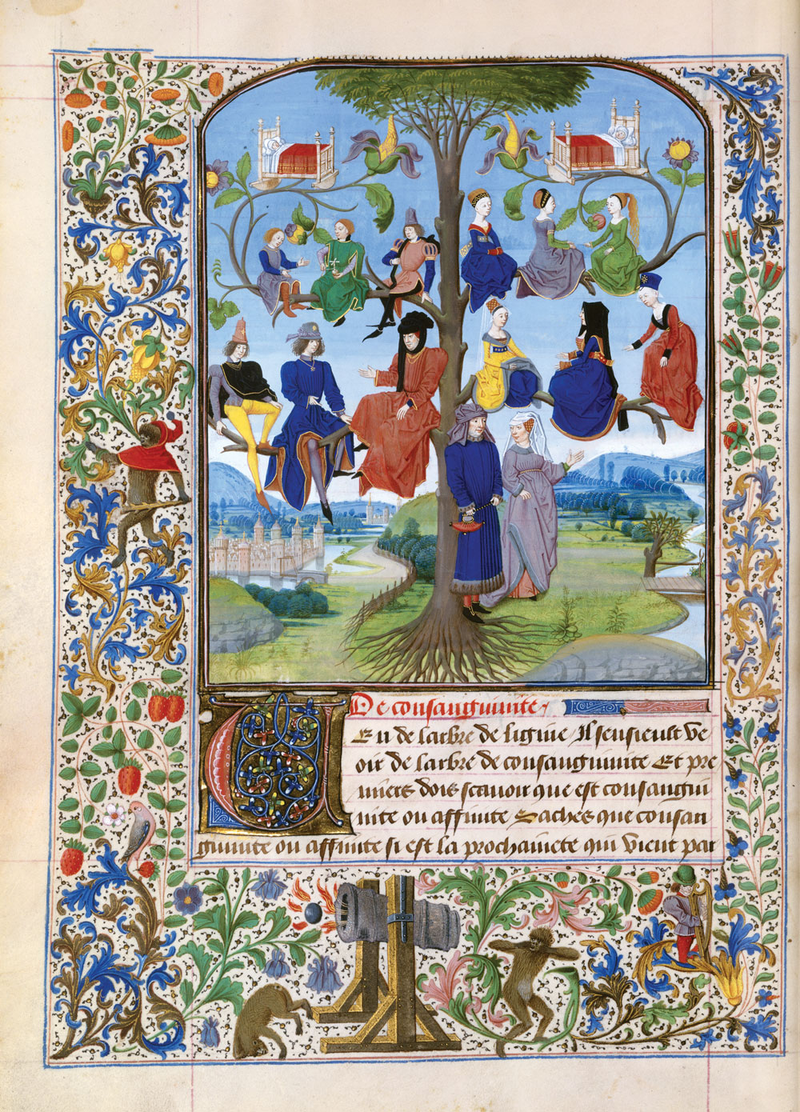 De consanguinite
Veu de larbre de lignie Il sensieult ve
oir de larbre de consanguinite Et pre
miers dois scavoir que est consangui
nite ou affinite Saches que consan
guinite ou affinite si est la prochainete qui vient par